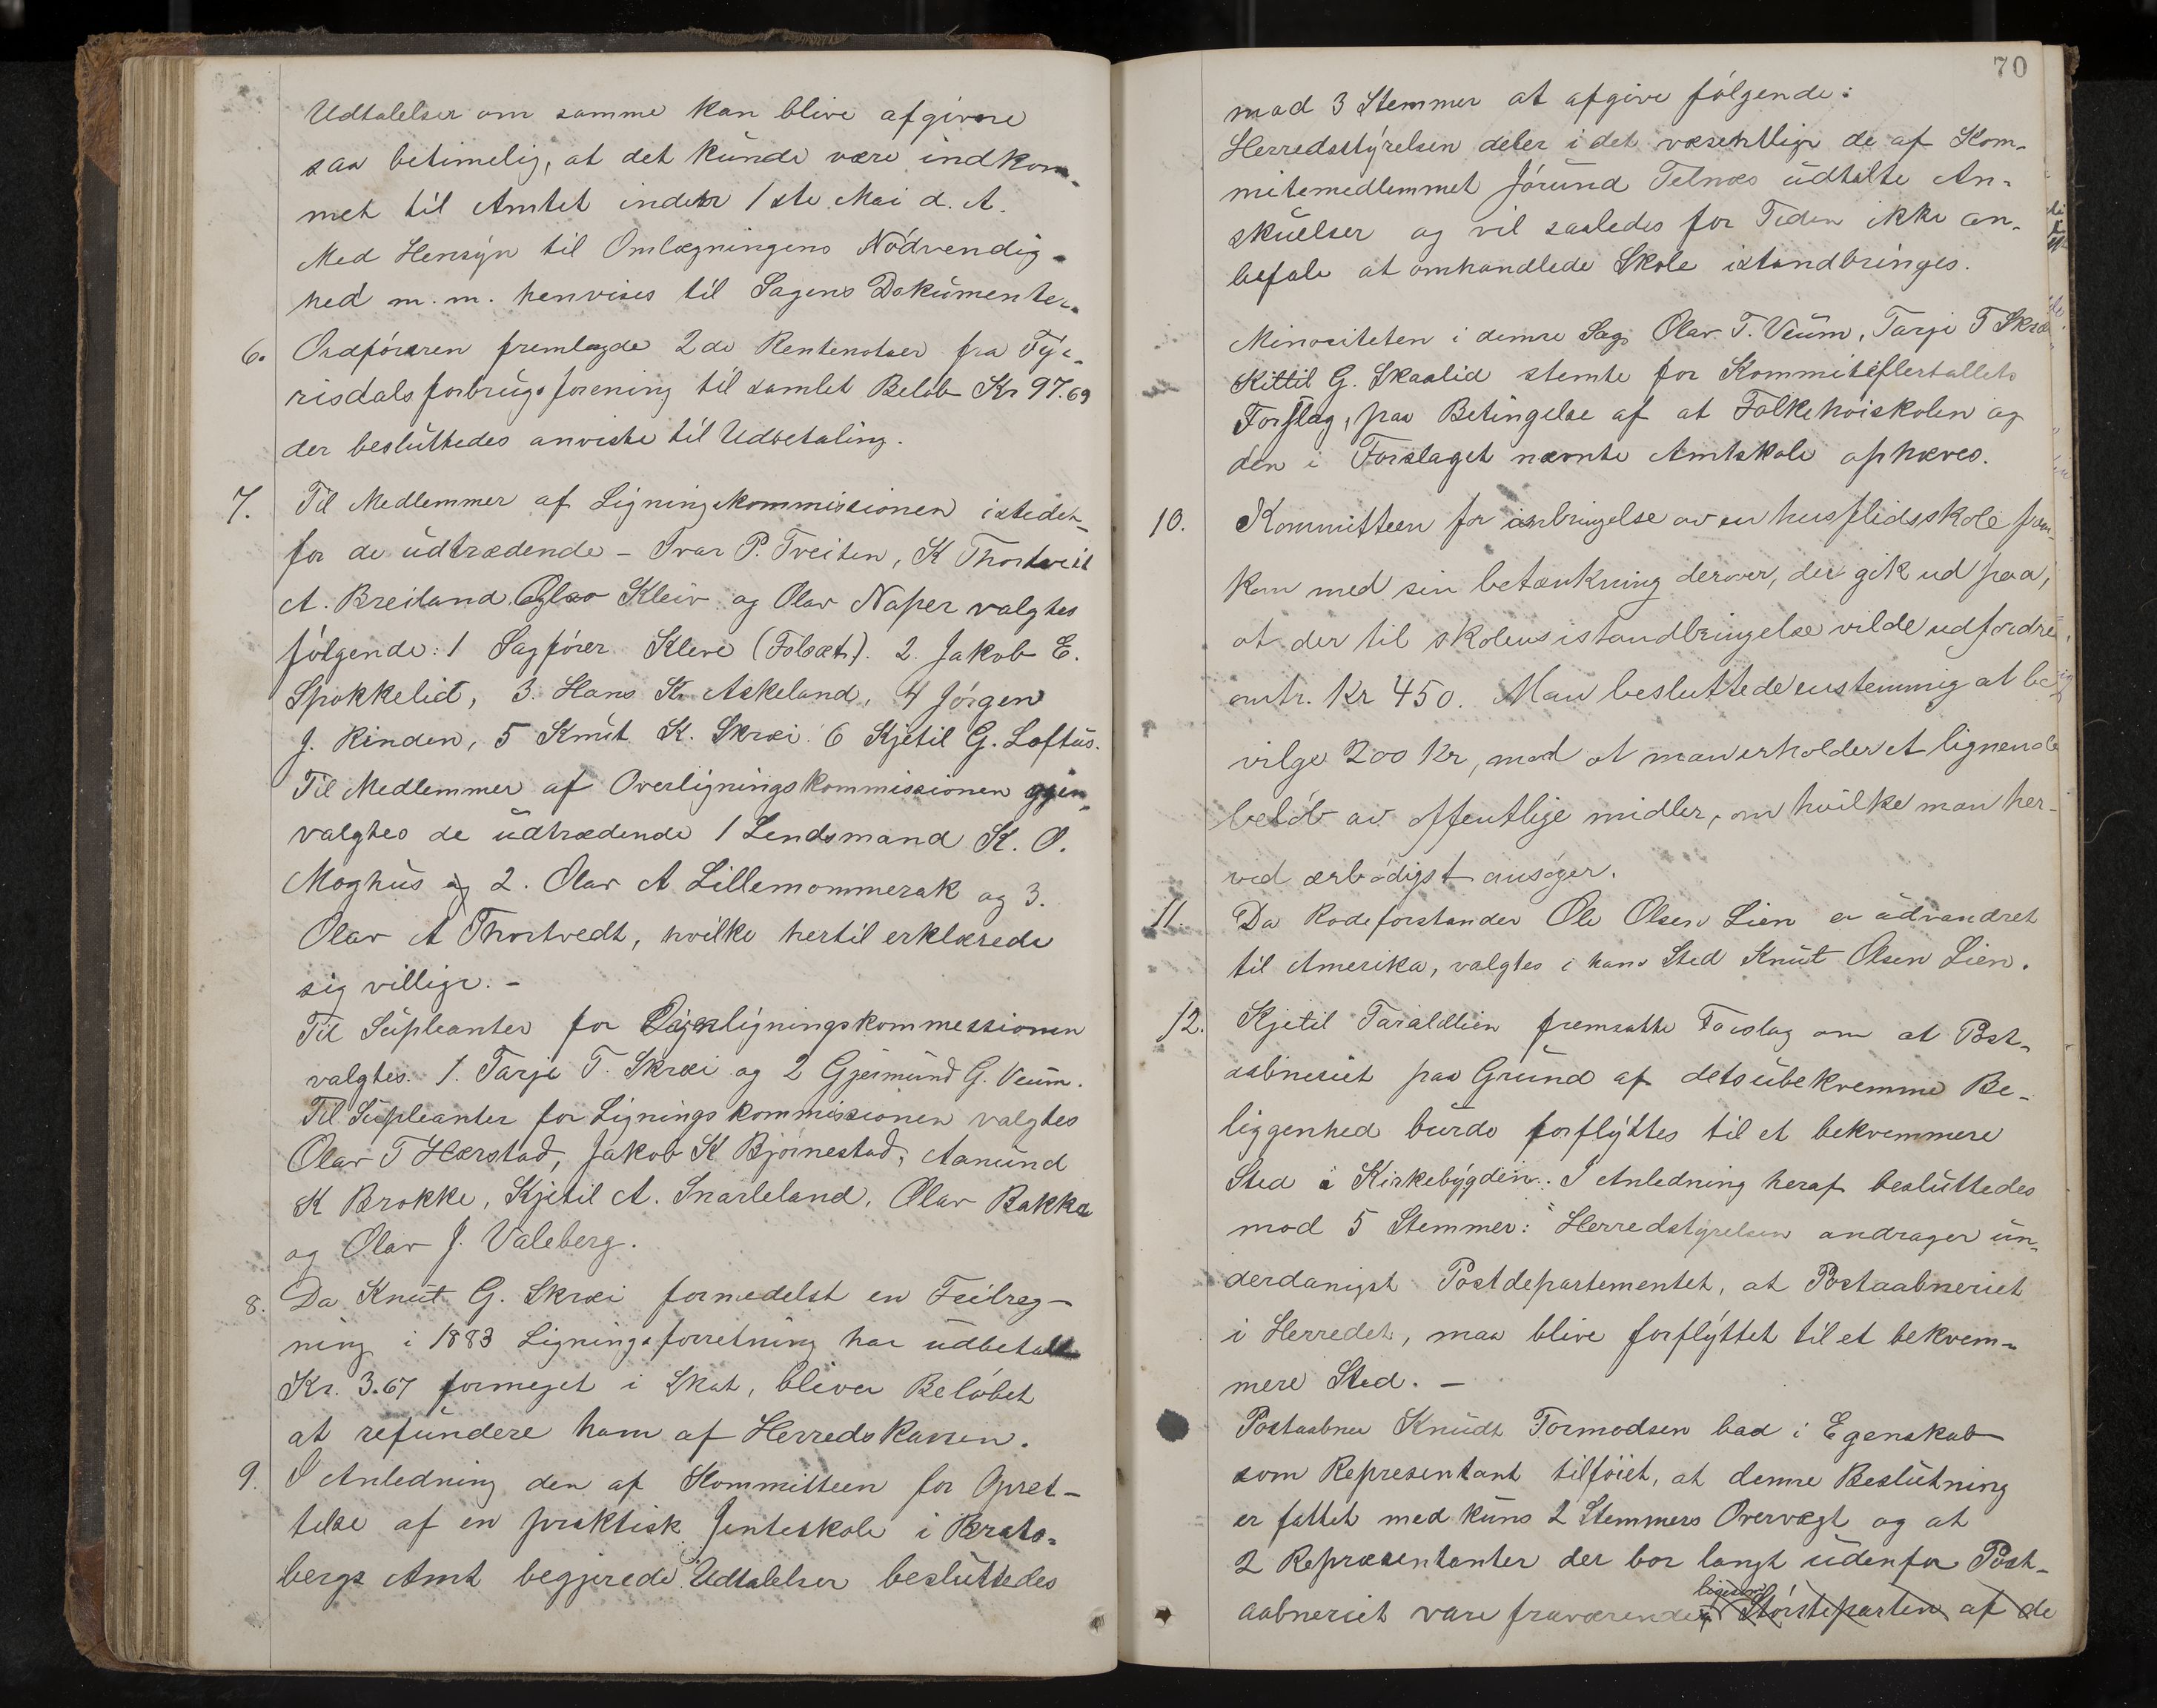 Udtalelser om samme kan blive afgivne
saa betimelig, at det kunde være indkom-
met til Amtet inden 1ste Mai d. A.
Med Hensyn til Omlægningens Nödvendig-
hed m.m. henvises til Sagens Dokumenter.
6. Ordföreren fremlagde 2de Rentenotaer fra Fy-
risdals forbrugsforening til samlet Belöb Kr 97.69
der besluttedes anviste til Udbetaling.
7. Til Medlemmer af Ligningskommissionen isteden-
for de udtrædende - Ivar P. Tveiten, K Thortveit
A. Breiland, Kleiv og Olav Naper valgtes
fölgende: 1 Sagförer Kleve (Folsæt). 2. Jakob E.
Spokkelid, 3. Hans K. Askeland, 4 Jörgen
J. Rinden, 5 Knut K. Skræi 6 Kjetil G. Loftus.
Til Medlemmer af Overligningskommissionen gjen-
valgtes de udtrædende 1 Lendsmand K. O.
Moghus og 2. Olav A Lillemommerak og 3.
Olav A Thortvedt, hvilke hertil erklærede
sig villige. -
Til Supleanter for ligningskommessionen
valgtes. 1. Tarje T. Skræi og 2 Gjermund G. Veum.
Til Supleanter for Ligningskommissionen valgtes
Olav T Hærstad, Jakob K Björnestad, Aanund
K Brokke, Kjetil A. Snarleland, Olav Bakka
og Olav J. Valeberg.
8. Da Knut G. Skræi formedelst en Feilreg-
ning i 1883 Ligningsforretning har udbetalt
Kr. 3.67 formeget i Skat, bliver Belöbet
at refundere ham af Herredskassen.
9. I Anledning den af Kommitteen for Opret-
telse af en praktisk Jenteskole i Brats-
bergs Amt begjærede Udtalelser besluttedes
70
mod 3 Stemmer at afgive fölgende:
Herredsstyrelsen deler i det væsentlige de af Kom-
mitemedlemmet Jörund Telnæs udtalte An-
skuelser og vil saaledes for Tiden ikke an-
befale at omhandlede Skole istandbringes.
Minoriteten i denne Sag Olav T. Veum, Tarje T Skræi
Kittil G. Skaalid stemte for Kommiteflertallets
Forslag, paa Betingelse af at Folkehöiskolen og
den i Forslaget nævnte Amtskole ophæves.
10. Kommitteen for anbringelse av en husflidsskole frem-
kom med sin betænkning derover, der gik ud paa,
at der til skolens istandbringelse vilde udfordres
omtr. Kr 450. Man besluttede enstemmig at be-
vilge 200 Kr, mod at man erholder et lignende
belöb av offentlige midler, om hvilke man her-
ved ærbödigst ansöger.
11. Da Rodeforstander Ole Olsen Lien er udvandret
til Amerika, valgtes i hans Sted Knut Olsen Lien.
12. Kjetil Taraldlien fremsatte Forslag om at Post-
aabneriet paa Grund af dets ubekvemme Be-
liggenhed burde forflyttes til et bekvemmere
Sted i Kirkebygden. I Anledning heraf besluttedes
mod 5 Stemmer: "Herredstyrelsen andrager un-
derdanigst Postdepartementet, at Postaabneriet
i Herredet, maa blive forflyttet til et bekvem-
mere Sted. -
Postaabner Knudt Tormodsen bad i Egenskab
som Representant tilföiet, at denne Beslutning
er fattet med kuns 2 Stemmers Overvægt og at
2 Repræsentanter der bor langt udenfor Post-
aabneriet vare fraværende ligesom Störsteparten af de